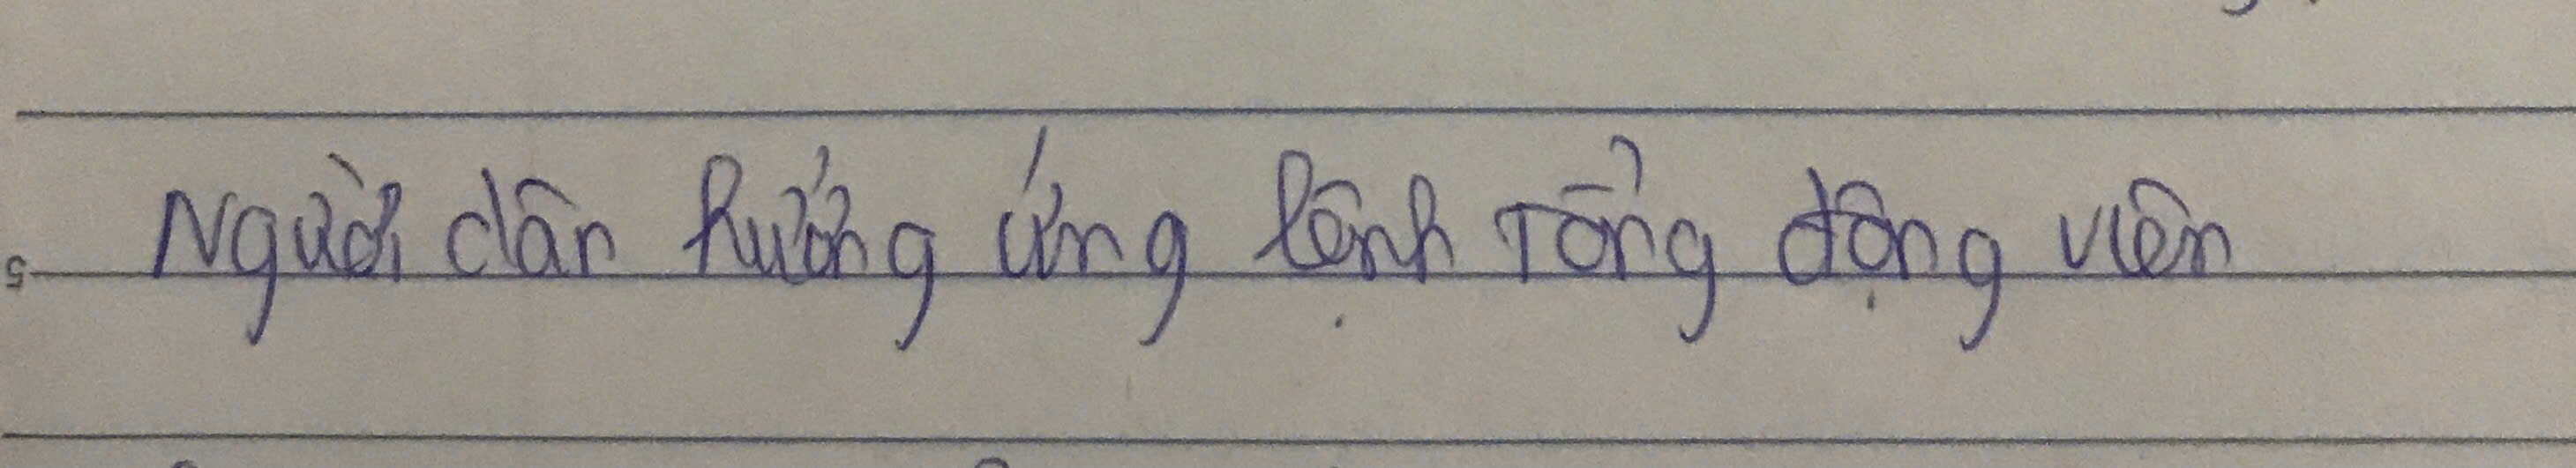 Người dân hưởng ứng lệnh Tổng động viên